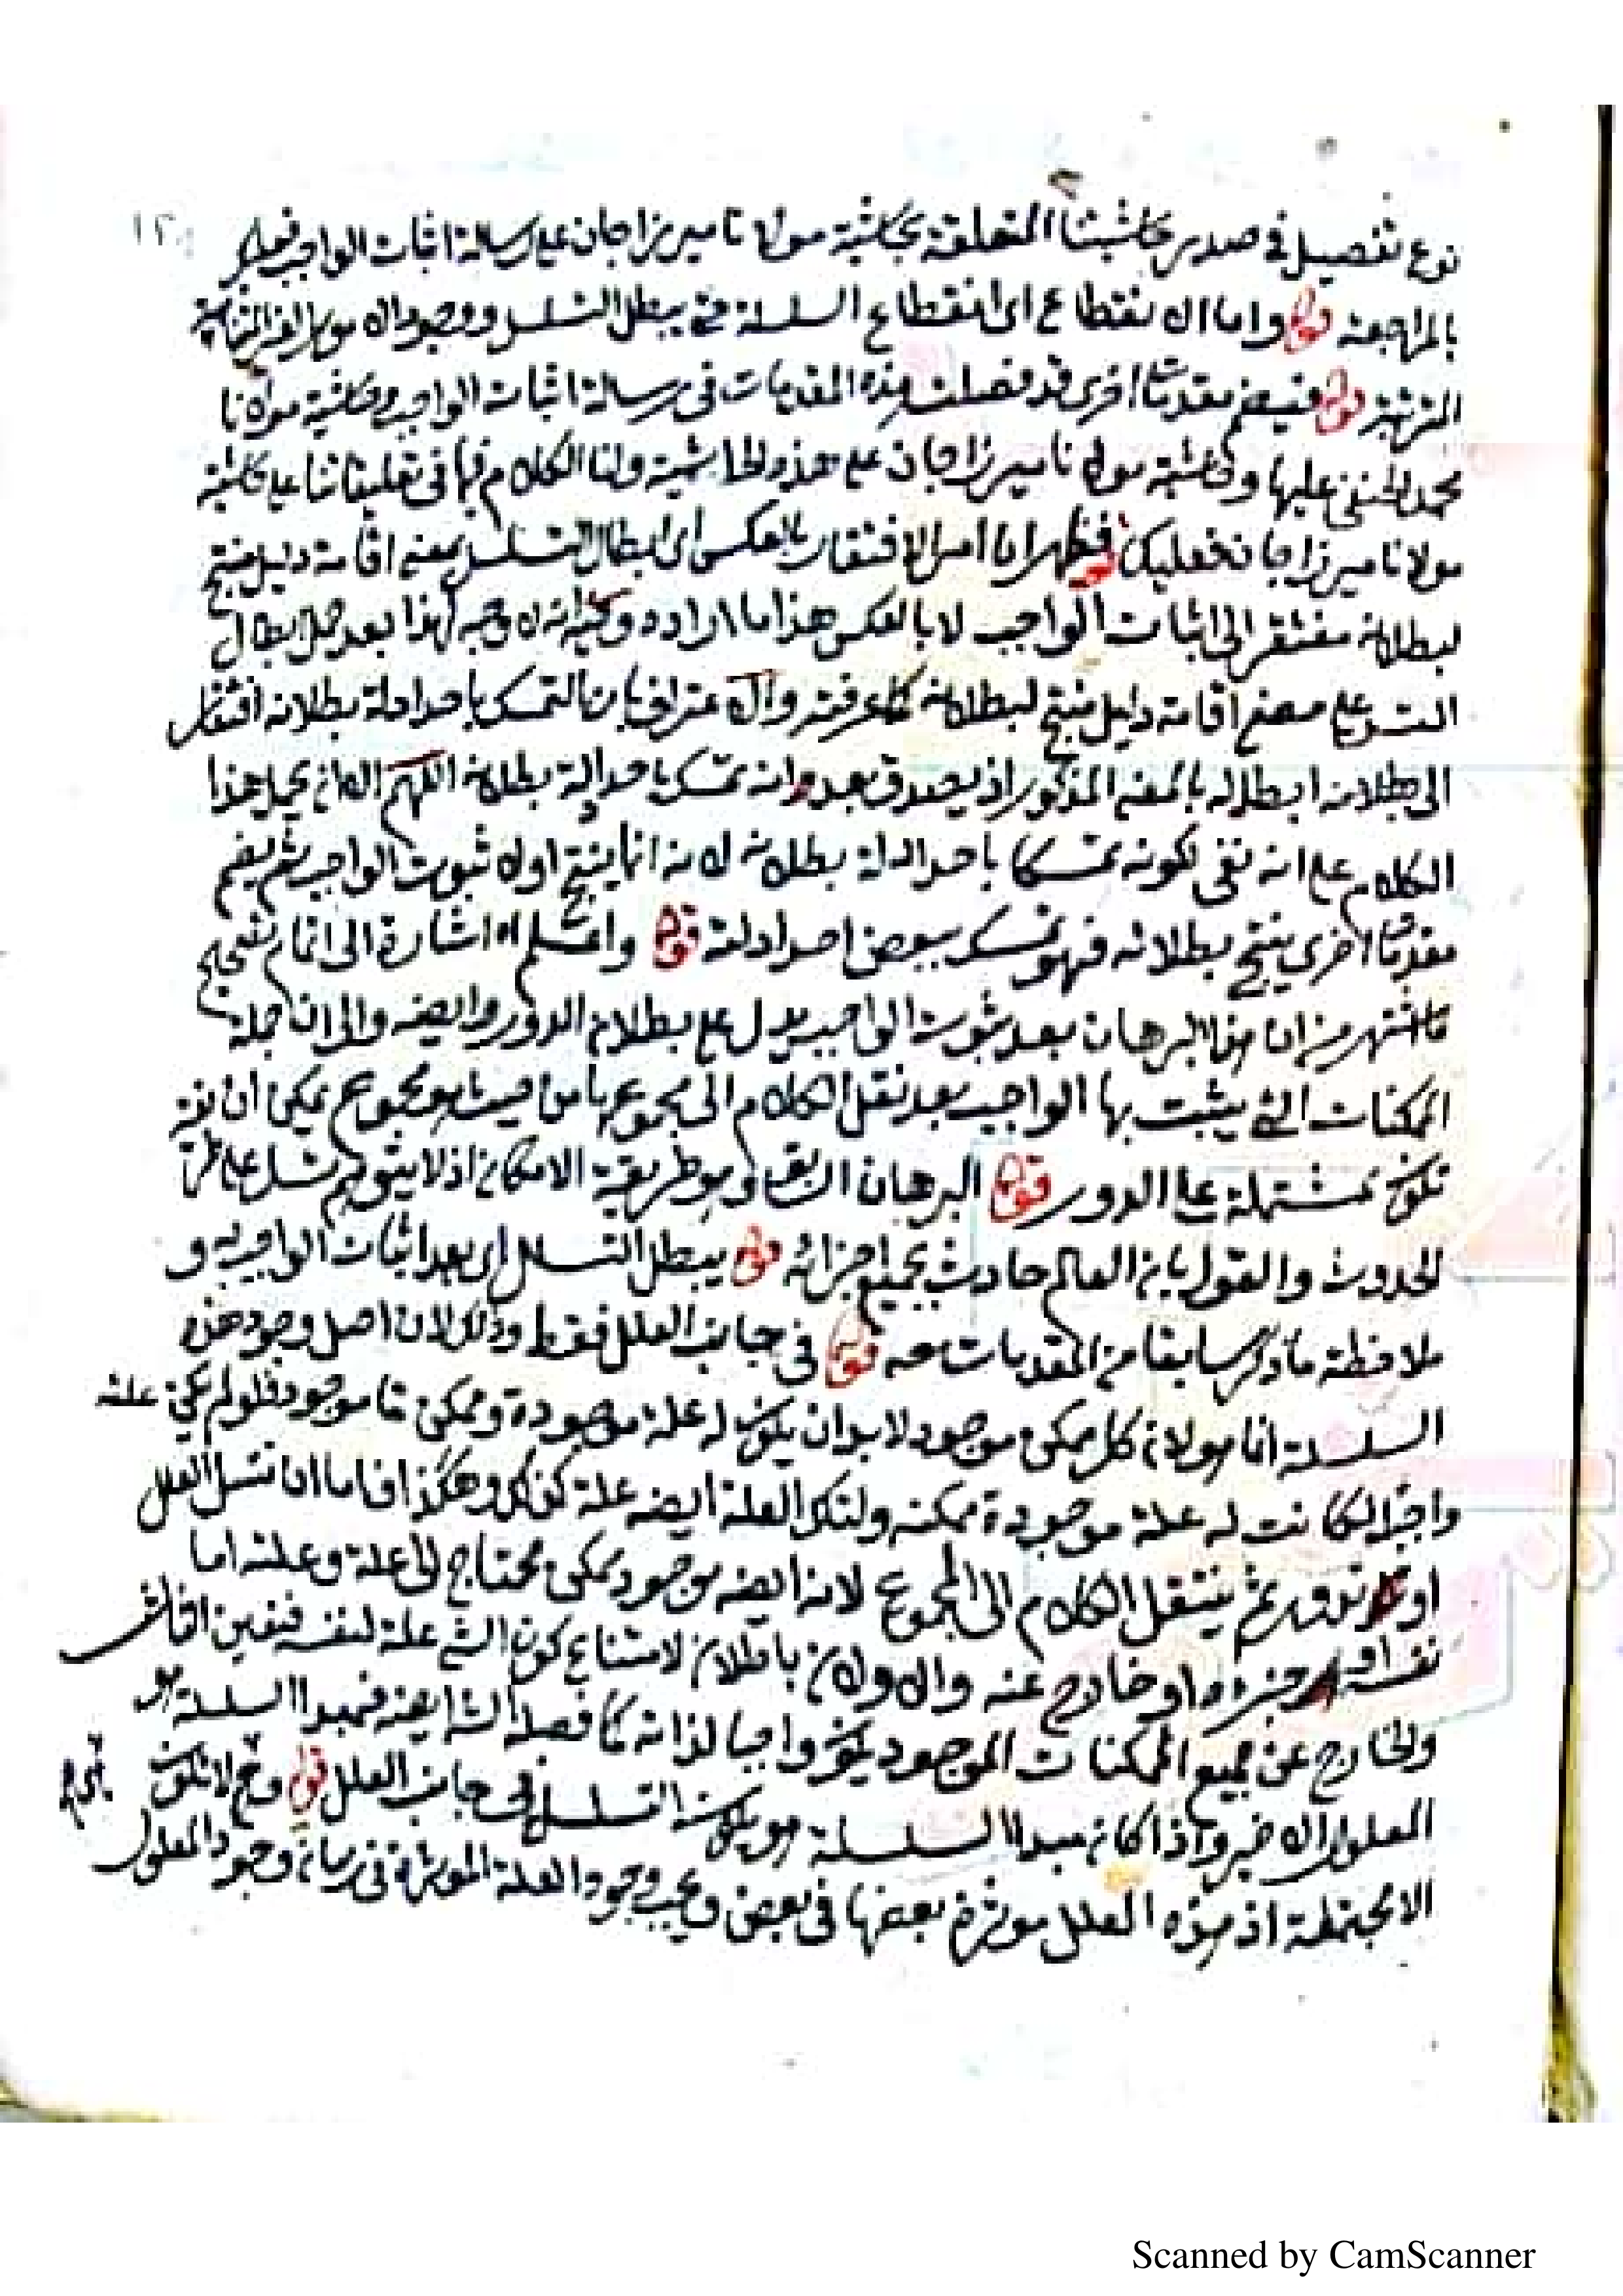 نوع تفصيل في صدر حاشيتنا المتعلقة بحاشية مولانا ميرزاجان على رسالة اثبات الواجب فعليك ١٢
بالمراجعة قوله واما الانقطاع اى انقطاع السلسلة حتى يبطل التسلسل ووجود الامور الغير المتناهية
المترتبة قوله فبضم مقدمات اخرى قد فصلت هذه المقدمات في رسالة اثبات الواجب وحاشية مولانا
محمد الحنفي عليها وحاشية مولانا ميرزاجان على هذه الحاشية ولنا الكلام فيها في تعليقاتنا على حاشية
مولانا ميرزاجان فعليك قوله فظهر ان امر الافتقار بالعكس اى ابطال التسلسل بمعنى اقامة دليل ينتج
لبطلانه مفتقر الى اثبات الواجب لا بالعكس هذا ما اراده وفيه انه لا وجه لهذا بعد حمل ابطال
التس على معنى اقامة دليل ينتج لبطلانه كما عرفته والاعتراف بان التمسك باحد ادلة بطلانه افتقار
الى بطلانه ابطال له بالمعنى المذكور اذ يصدق بعد انه تمسك باحد ادلة بطلانه اللهم الا ان يحمل هذا
الكلام على انه نفى لكونه تمسكا باحد ادلة بطلانه لانه انما ينتج اولا ثبوت الواجب ثم بضم
مقدمات اخرى ينتج بطلانه فهو تمسك ببعض احد ادلته قوله واعلم اه اشارة الى انما
ما اشتهر من ان هذا البرهان بعد ثبوت الواجب يدل على بطلان الدور وايضه والى ان جملة
الممكنات التي يثبت بها الواجب بعد نقل الكلام الى مجموعها من حيث هو مجموع يمكن ان
تكون مشتملة على الدور قوله البرهان السابق اه وهو طريقة الامكان اذ لا يتوهم على
الحدوث والقول بان العالم حادث بجميع اجزائه قوله يبطل التسلسل اى بعد اثبات الواجب به و
ملاحظة ما ذكر سابقا من المقدمات معه قوله في جانب العلل فقط وذلك لان اصل وجود هذه
السلسلة انما هو لان كل ممكن موجود لا بد ان يكون له علة موجودة وممكن ما موجود فلو لم يكن علته
واجبا لكانت له علة موجودة ممكنة ولتلك العلة ايضه علة كذلك وهكذا فاما ان تتسلسل العلل
او تدور ثم ينتقل الكلام الى المجموع لانه ايضه موجود ممكن محتاج الى علة وعلته اما
نفسه او جزءه او خارج عنه والاولان باطلان لامتناع كون الشئ علة لنفسه فتعين الثالث
والخارج عن جميع الممكنات الموجودة يكون واجبا لذاته كما فصله الش ايضه فمبدا السلسلة هو
المعلول الاخير واذا كان مبدا السلسلة هو يكون التسلسل في جانب العلل قوله وح لا تكون
الا مجتمعة اذ هذه العلل موثرة بعضها في بعض ويجب وجود العلة الموثرة في زمان وجود المعلول
Scanned by CamScanner